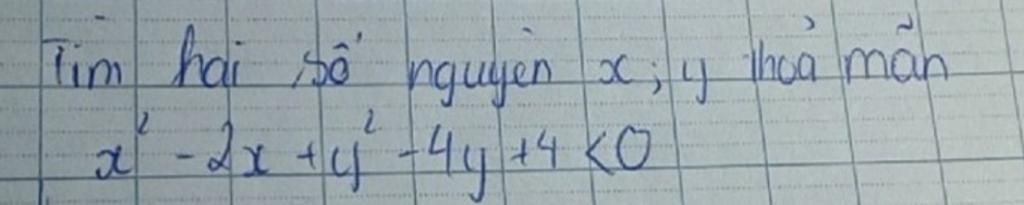 Tìm hai số nguyên x; y thoả mãn
x² - 2x + y² - 4y + 4 < 0